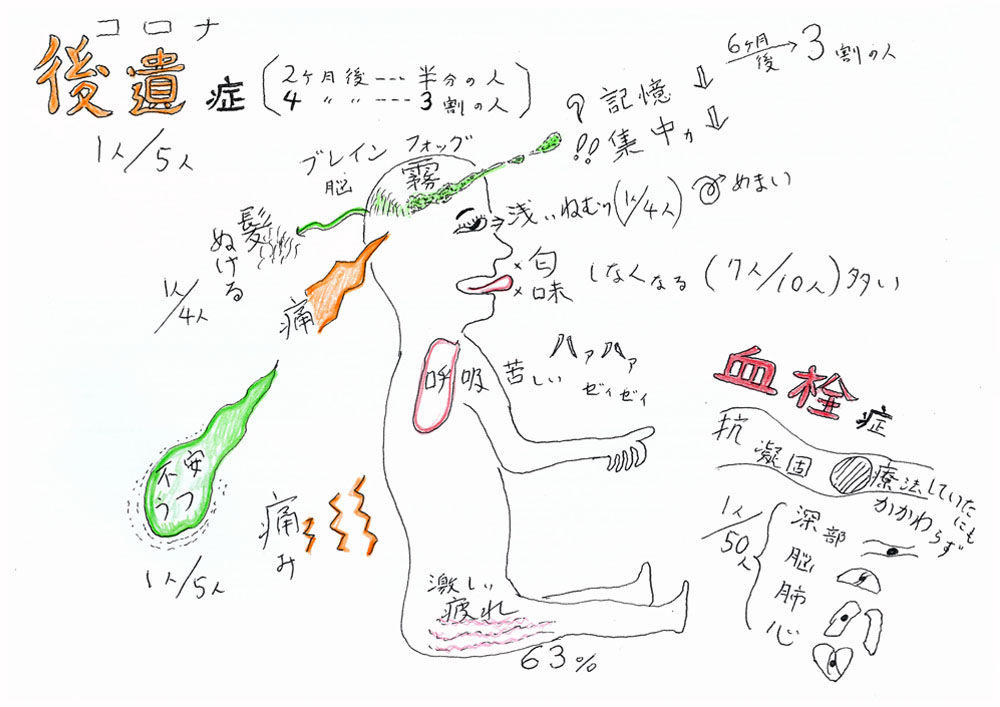 コロナ
後遺症
(2ヶ月後---半分の人
4 〃 〃 ---3割の人)
1人/5人
6ヶ月後→3割の人
? 記憶 ↓
!! 集中力 ↓
ブレイン フォッグ
脳 霧
浅いねむり(1人/4人) めまい
髪ぬける
1人/4人
×匂
×味
しなくなる (7人/10人)多い
痛
呼吸 苦しい
ハァハァ
ゼィゼィ
不安
うつ
1人/5人
痛み
激しい
疲れ
63%
血栓症
抗凝固療法していたにも
かかわらず
1人/50人
深部
脳
肺
心